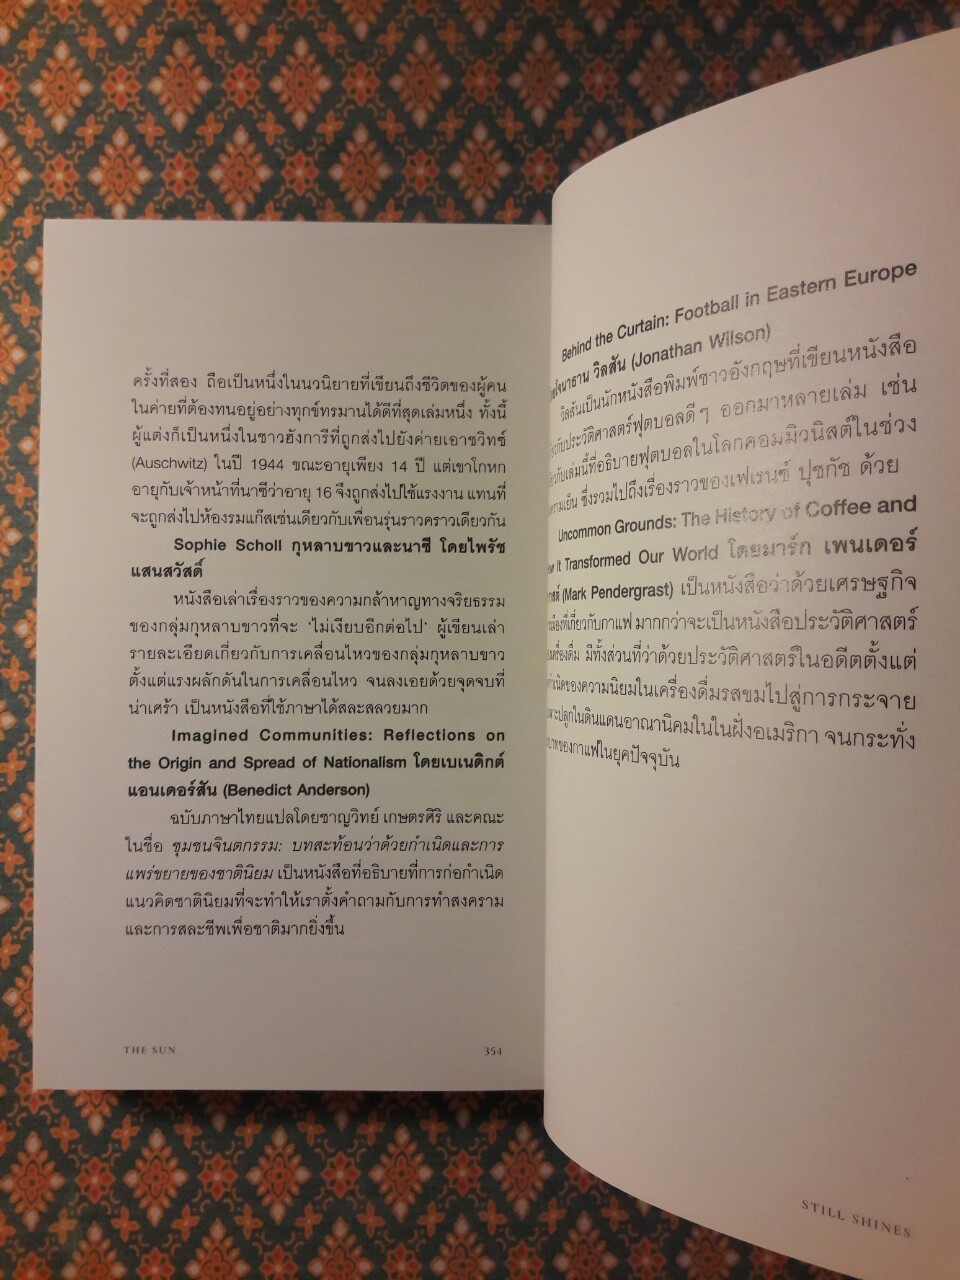 ครั้งที่สอง ถือเป็นหนึ่งในนวนิยายที่เขียนถึงชีวิตของผู้คน
ในค่ายที่ต้องทนอยู่อย่างทุกข์ทรมานได้ดีที่สุดเล่มหนึ่ง ทั้งนี้
ผู้แต่งก็เป็นหนึ่งในชาวฮังการีที่ถูกส่งไปยังค่ายเอาชวิทซ์
(Auschwitz) ในปี 1944 ขณะอายุเพียง 14 ปี แต่เขาโกหก
อายุกับเจ้าหน้าที่นาซีว่าอายุ 16 จึงถูกส่งไปใช้แรงงาน แทนที่
จะถูกส่งไปห้องรมแก๊สเช่นเดียวกับเพื่อนรุ่นราวคราวเดียวกัน
Sophie Scholl กุหลาบขาวและนาซี โดยไพรัช
แสนสวัสดิ์
หนังสือเล่าเรื่องราวของความกล้าหาญทางจริยธรรม
ของกลุ่มกุหลาบขาวที่จะ 'ไม่เงียบอีกต่อไป' ผู้เขียนเล่า
รายละเอียดเกี่ยวกับการเคลื่อนไหวของกลุ่มกุหลาบขาว
ตั้งแต่แรงผลักดันในการเคลื่อนไหว จนลงเอยด้วยจุดจบที่
น่าเศร้า เป็นหนังสือที่ใช้ภาษาได้สละสลวยมาก
Imagined Communities: Reflections on
the Origin and Spread of Nationalism โดยเบเนดิกต์
แอนเดอร์สัน (Benedict Anderson)
ฉบับภาษาไทยแปลโดยชาญวิทย์ เกษตรศิริ และคณะ
ในชื่อ ชุมชนจินตกรรม: บทสะท้อนว่าด้วยกำเนิดและการ
แพร่ขยายของชาตินิยม เป็นหนังสือที่อธิบายที่การก่อกำเนิด
แนวคิดชาตินิยมที่จะทำให้เราตั้งคำถามกับการทำสงคราม
และการสละชีพเพื่อชาติมากยิ่งขึ้น
THE SUN
354
Behind the Curtain: Football in Eastern Europe
วิลสัน (Jonathan Wilson)
วิลสันเป็นนักหนังสือพิมพ์ชาวอังกฤษที่เขียนหนังสือ
กับประวัติศาสตร์ฟุตบอลดีๆ ออกมาหลายเล่ม เช่น
กับเล่มนี้ที่อธิบายฟุตบอลในโลกคอมมิวนิสต์ในช่วง
ซึ่งรวมไปถึงเรื่องราวของเฟเรนซ์ ปุชกัช ด้วย
Uncommon Grounds: The History of Coffee and
It Transformed Our World โดยมาร์ก เพนเดอร์
(Mark Pendergrast) เป็นหนังสือว่าด้วยเศรษฐกิจ
ที่เกี่ยวกับกาแฟ มากกว่าจะเป็นหนังสือประวัติศาสตร์
มีทั้งส่วนที่ว่าด้วยประวัติศาสตร์ในอดีตตั้งแต่
ของความนิยมในเครื่องดื่มรสขมไปสู่การกระจาย
ปลูกในดินแดนอาณานิคมในในฝั่งอเมริกา จนกระทั่ง
ของกาแฟในยุคปัจจุบัน
STILL SHINES